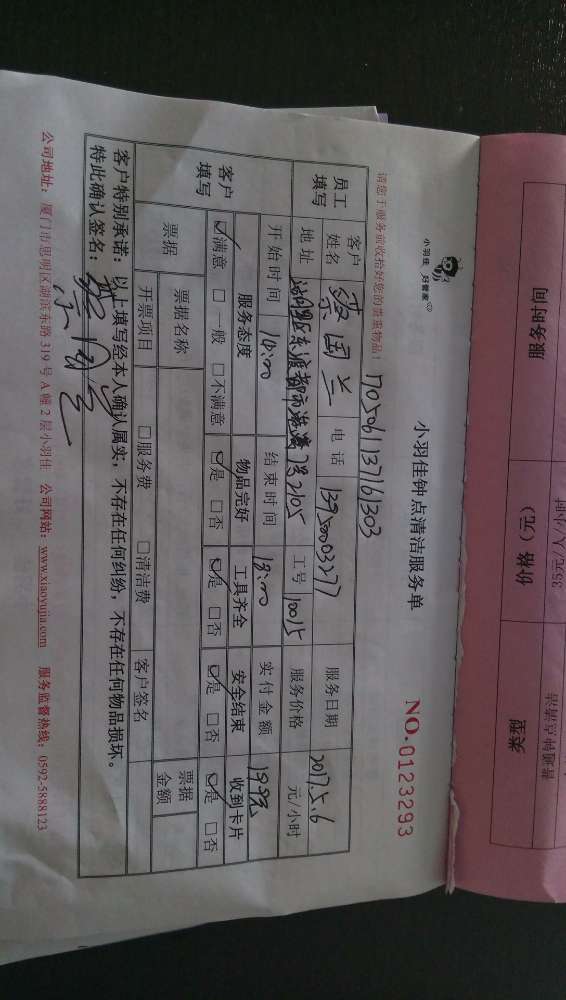 小羽佳 好管家
小羽佳钟点清洁服务单
请您于服务前收拾好您的贵重物品!
NO.0123293
1705061137161303
员工填写 客户姓名 蔡国兰 电话 13950003277 服务日期 2017.5.6
地址 湖里区东渡都市港湾 2105 工号 10015 服务价格 元/小时
客户填写 开始时间 14:00 结束时间 18:00 实付金额
服务态度 物品完好 工具齐全 安全结束 收到卡片
☑满意 □一般 □不满意 ☑是 □否 ☑是 □否 ☑是 □否 ☑是 □否
票据 票据名称 客户签名 票据金额
开票项目 □服务费 □清洁费
客户特别承诺:以上填写经本人确认属实,不存在任何纠纷,不存在任何物品损坏。
特此确认签名:
公司地址:厦门市思明区湖滨东路 319 号 A 幢 2 层小羽佳 公司网站:www.xiaoyujia.com 服务监督热线:0592-5888123
服务时间 价格(元) 类型
35元/人/小时 普通钟点清洁